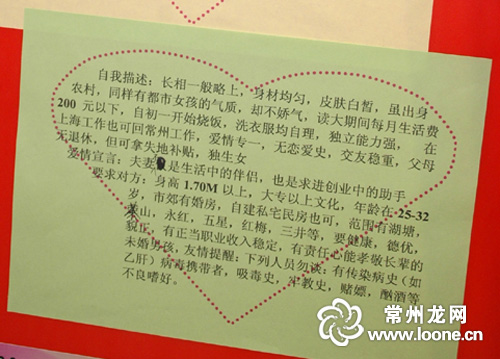 自我描述：长相一般略上，身材均匀，皮肤白皙，虽出身
农村，同样有都市女孩的气质，却不娇气，读大期间每月生活费
200 元以下，自初一开始烧饭，洗衣服均自理，独立能力强， 在
上海工作也可回常州工作，爱情专一，无恋爱史，交友稳重，父母
无退休，但可拿失地补贴，独生女
爱情宣言：夫妻是生活中的伴侣，也是求进创业中的助手
要求对方：身高 1.70M 以上，大专以上文化，年龄在 25-32
岁，市郊有婚房，自建私宅民房也可，范围有湖塘，
茶山，永红，五星，红梅，三井等，要健康，德优，
貌正，有正当职业收入稳定，有责任心能孝敬长辈的
未婚男孩，友情提醒：下列人员勿谈：有传染病史（如
乙肝）病毒携带者，吸毒史，牢教史，赌嫖，酗酒等
不良嗜好。
常州龙网
www.loone.cn